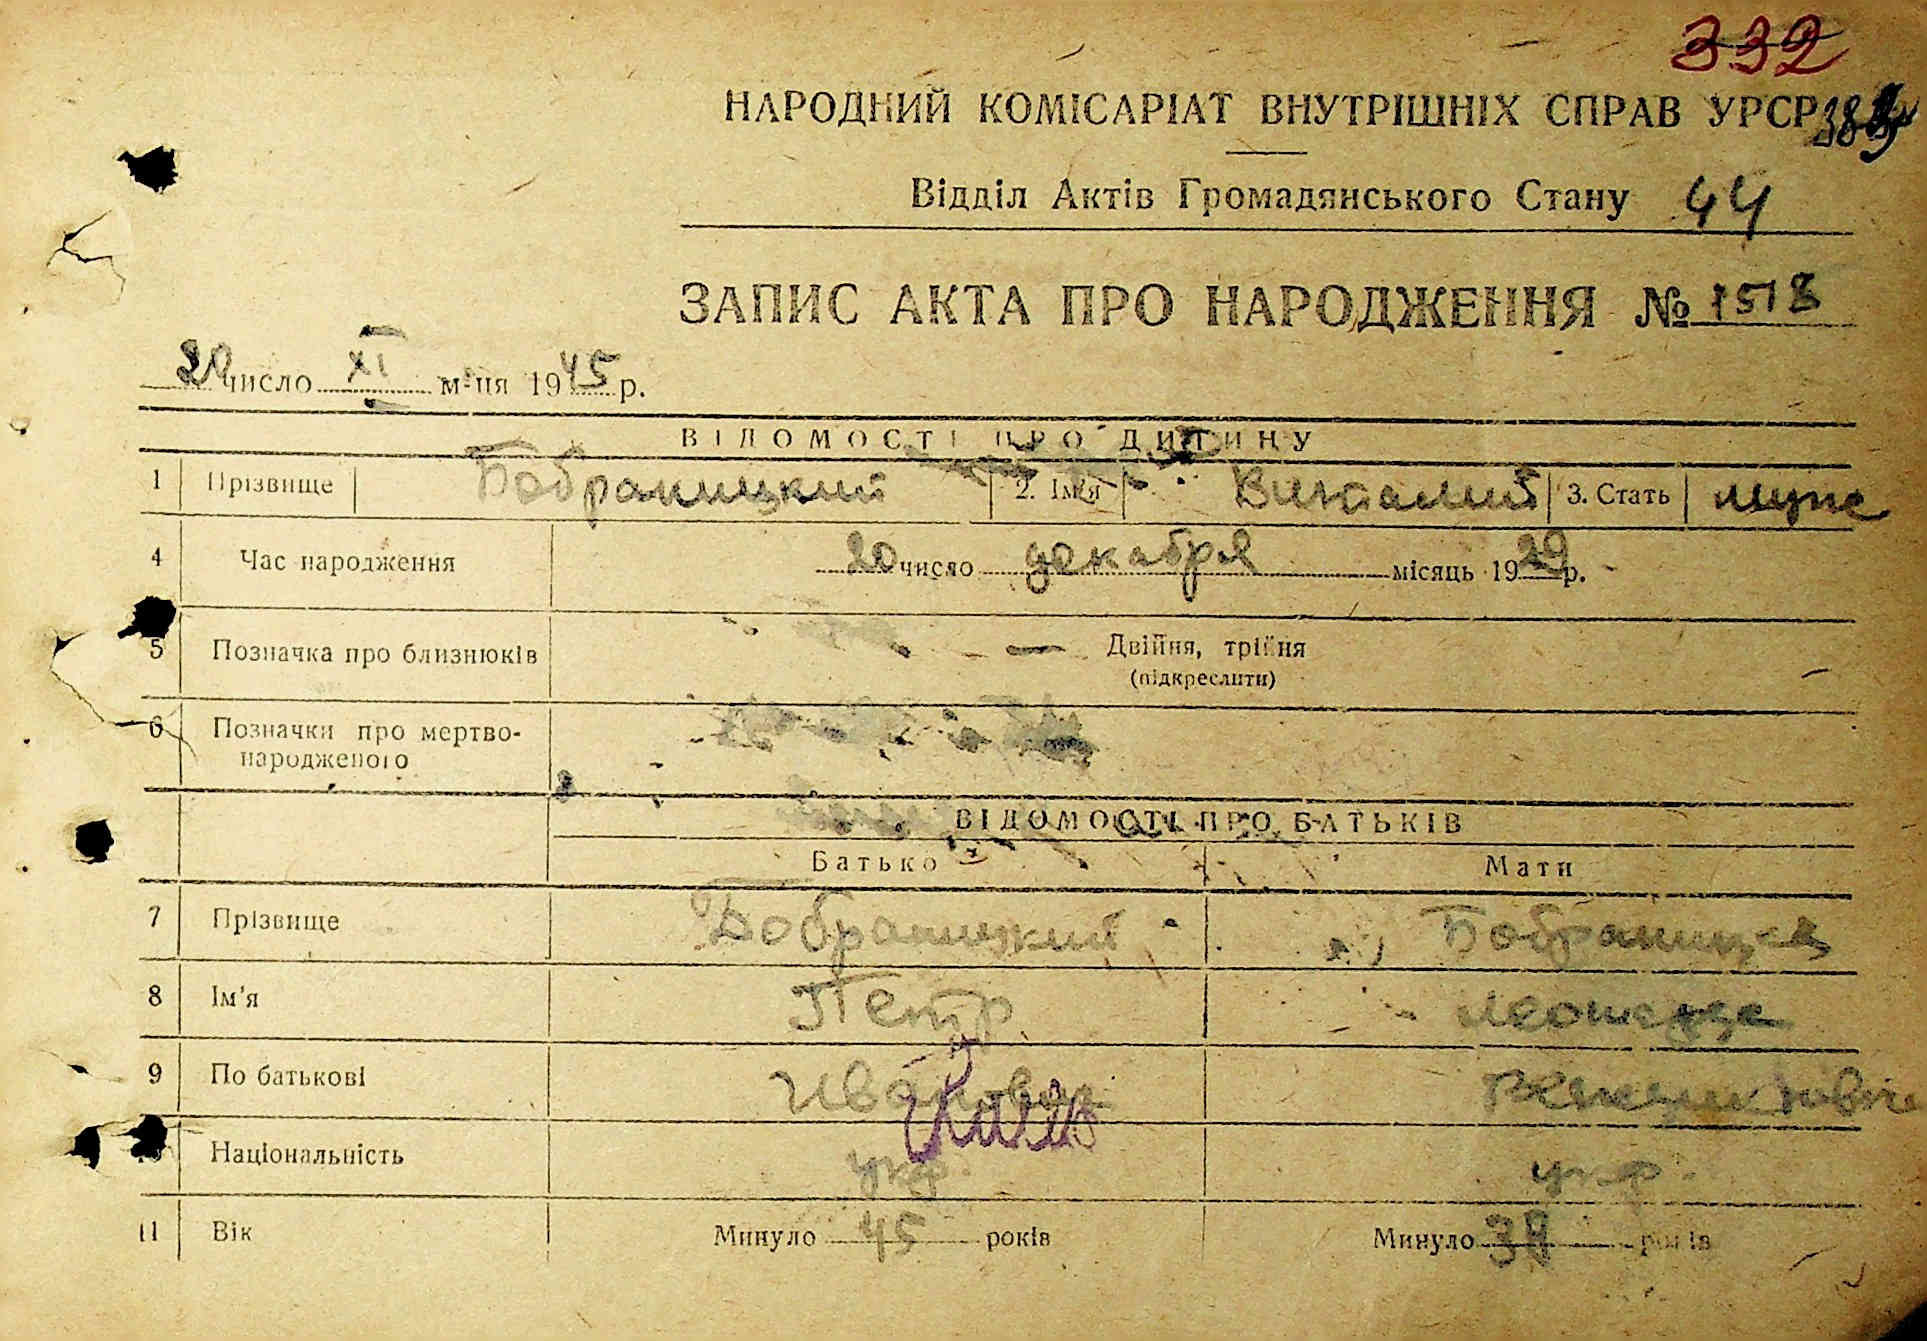 332
НАРОДНИЙ КОМІСАРІАТ ВНУТРІШНІХ СПРАВ УРСР
Відділ Актів Громадянського Стану 44
ЗАПИС АКТА ПРО НАРОДЖЕННЯ № 1518
20 число XI м-ця 1945 р.
ВІДОМОСТІ ПРО ДИТИНУ
1 Прізвище Бобраницкий 2. Ім'я Виталий 3. Стать муж
4 Час народження 20 число декабря місяць 1929 р.
5 Позначка про близнюків — Двійня, трійня
(підкреслити)
6 Позначки про мертво-
народженого
ВІДОМОСТІ ПРО БАТЬКІВ
Батько Мати
7 Прізвище Бобраницкий Бобраницка
8 Ім'я Петр
9 По батькові Иванович
10 Національність укр. укр.
11 Вік Минуло 45 років Минуло років